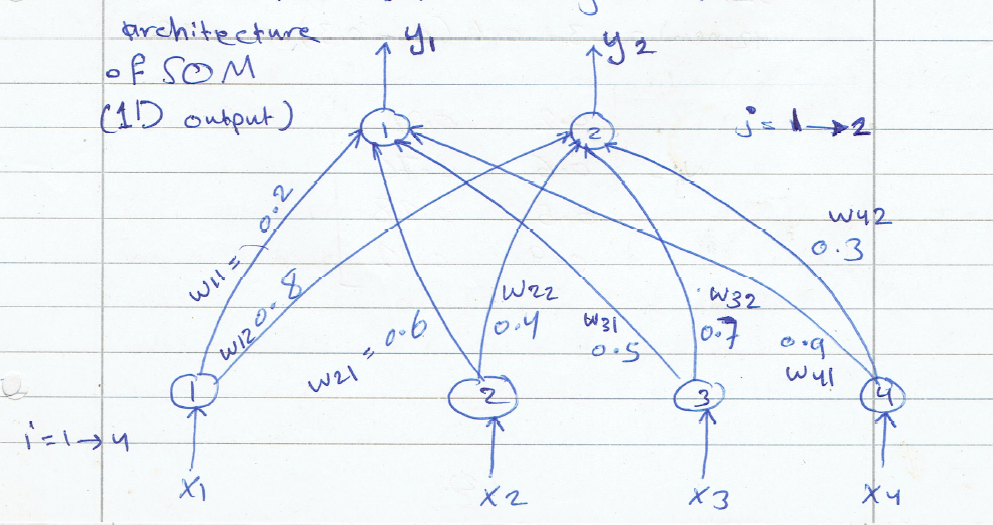 architecture
of SOM
(1D output)
y1
y2
1
2
j = 1 → 2
w11 = 0.2
w12 0.8
w21 = 0.6
w22
0.4
w31
0.5
w32
0.7
0.9
w41
w42
0.3
1
2
3
4
i = 1 → 4
x1
x2
x3
x4